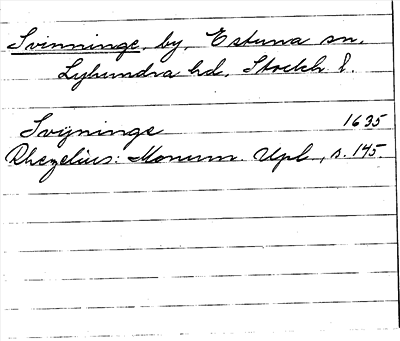 Svinninge, by, Estuna sn.
Lyhundra hd, Stockh. l.
Svijninge 1635
Rhezelius: Monum. Upl., s. 145.